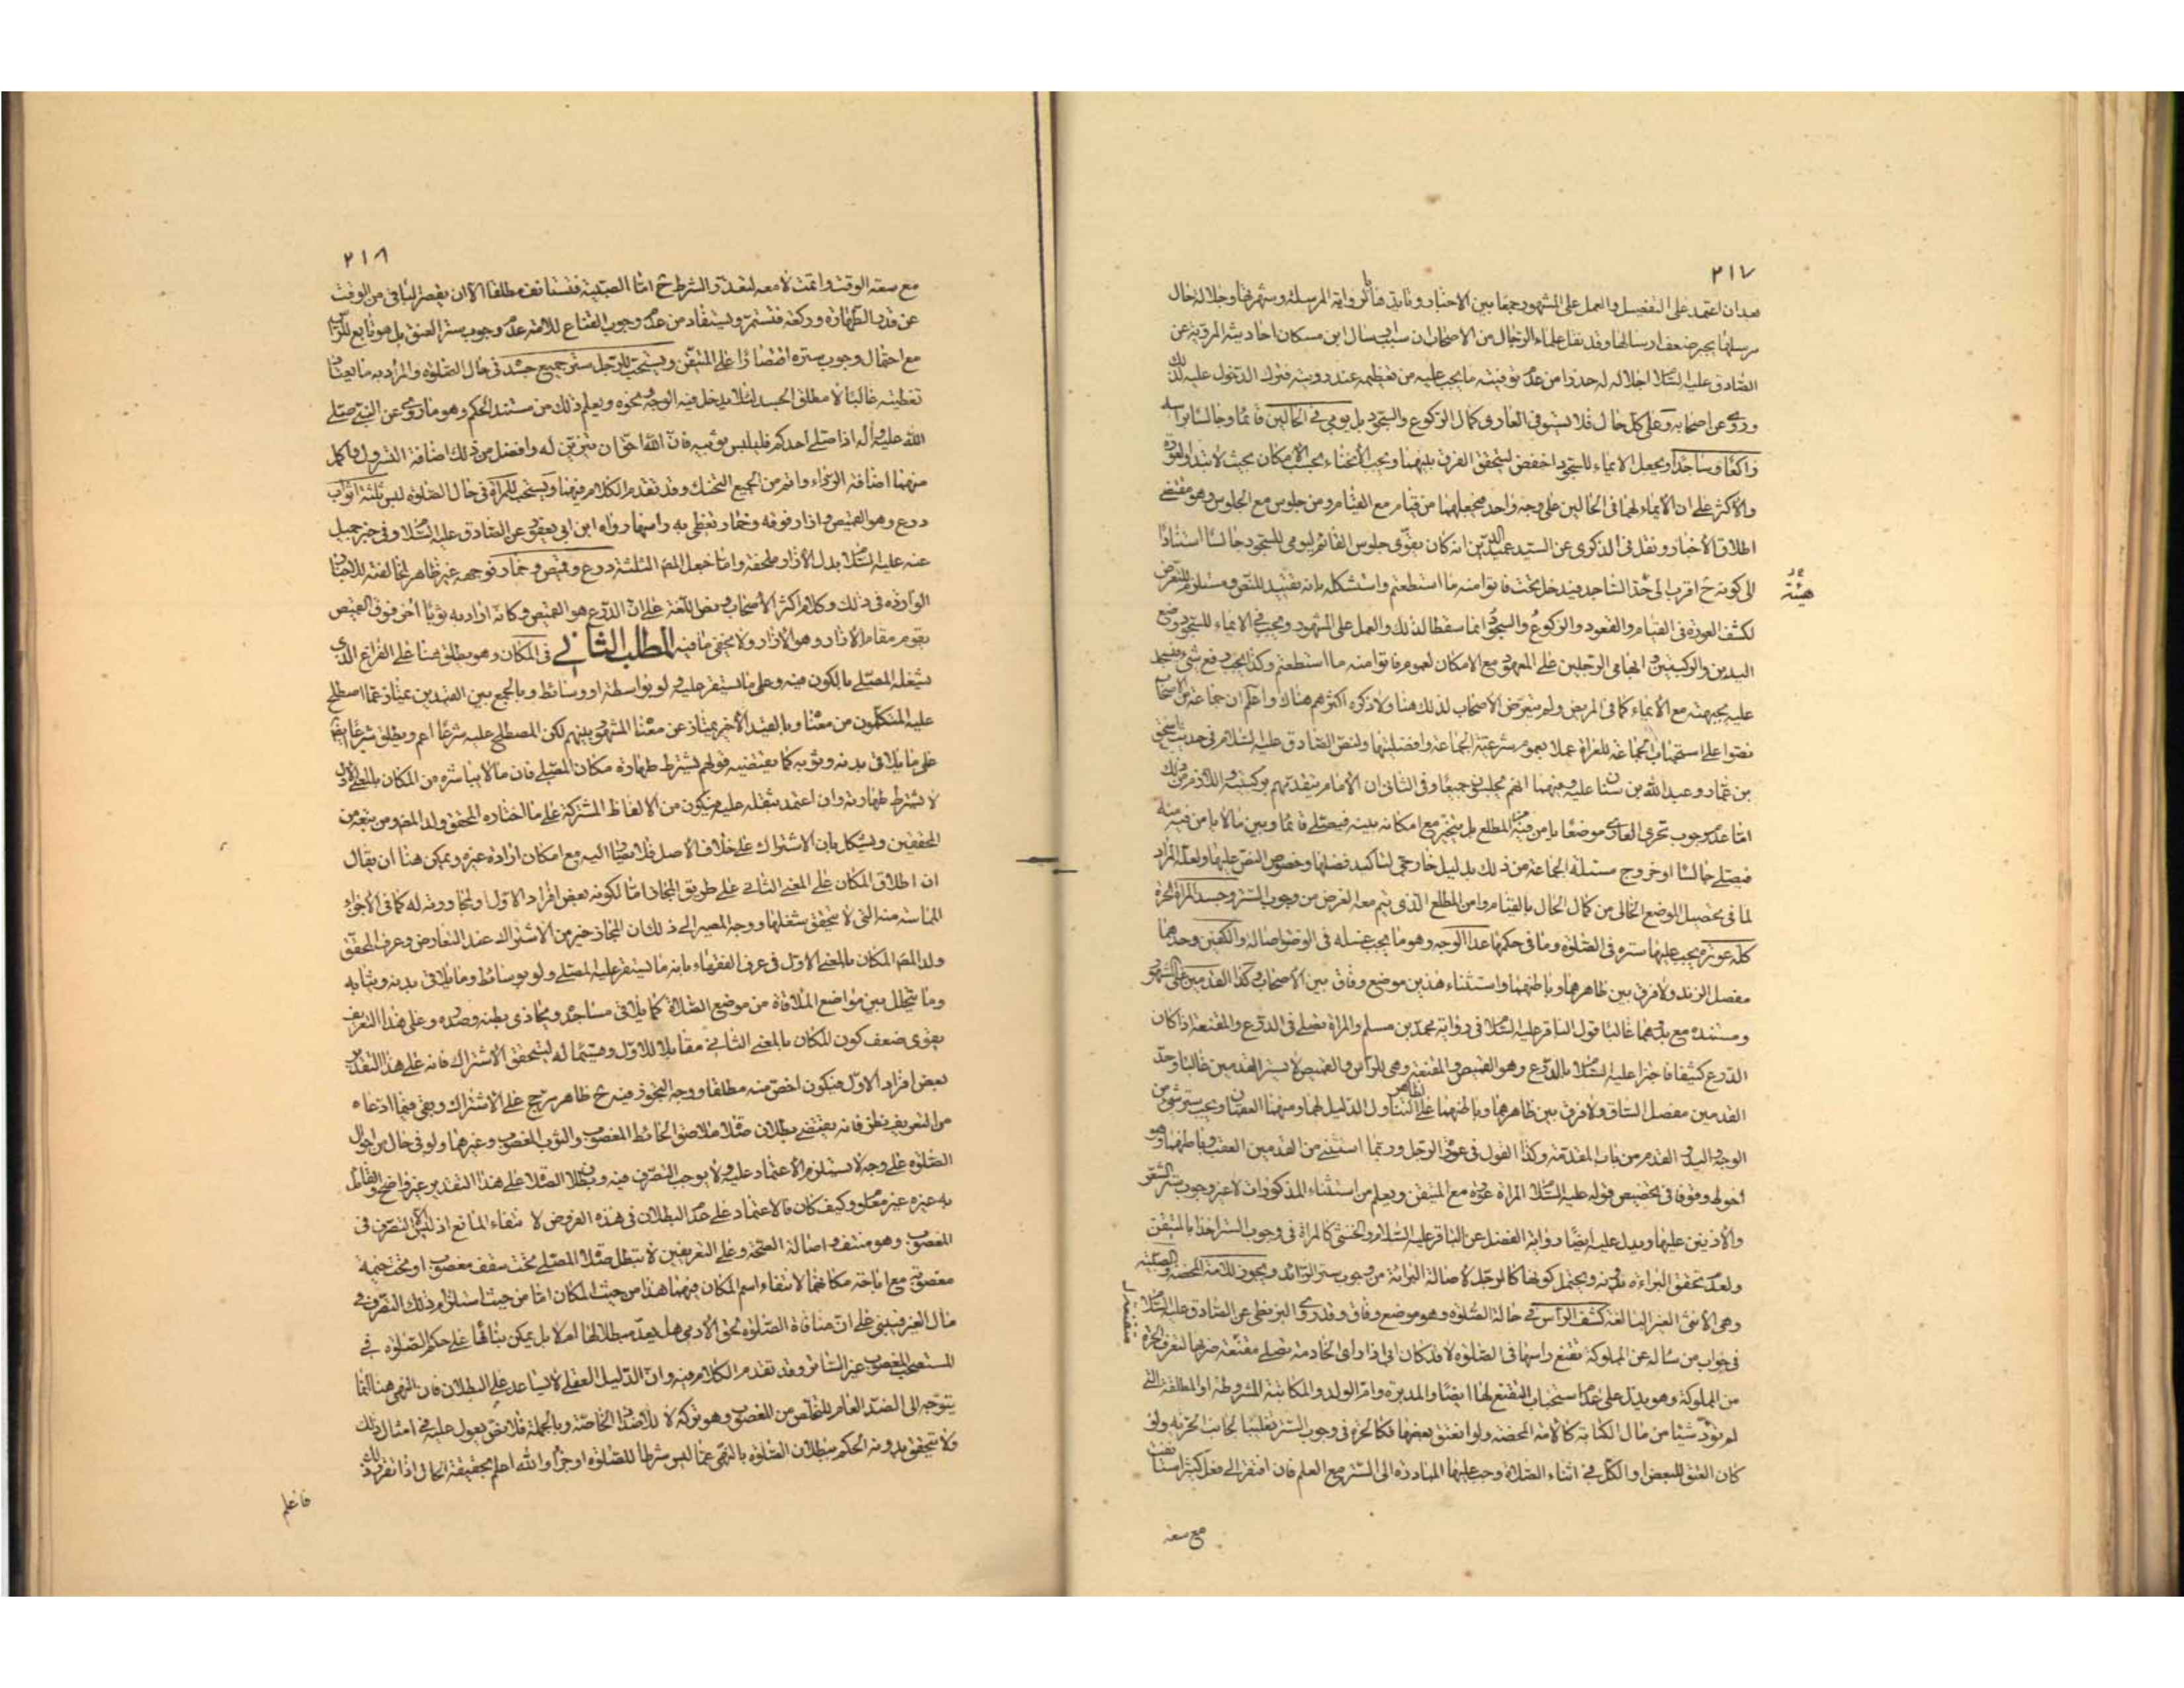 ٢١٧
بعد ان اعتمد على التفصيل والعمل على المشهور جمعا بين الاخبار وفايدة تأثر رواية المرسلة وشهرتها وجلالة حال
مرسلها يجبر ضعف ارسالها وقد نقل علماء الرجال من الاصحاب ان سبب ارسال ابن مسكان احاديثه المروية عن
الصادق عليه السلام اجلاله له حذرا من عدم توفيته ما يجب عليه من تعظيمه عند رويته فترك الدخول عليه لذلك
وروى عن اصحابه وعلى كل حال فلا يستوفى العارى كمال الركوع والسجود بل يومى في الحالين قائما وجالسا براسه
راكعا وساجدا ويجعل الايماء للسجود اخفض ليتحقق الفرق بينهما ويجب الانحناء بحسب الامكان بحيث لا تبدو العورة
والاكثر على ان الايماء لهما فى الحالين على وجه واحد فيجعلهما من قيام مع القيام ومن جلوس مع الجلوس وهو مقتضى
اطلاق الاخبار ونقل فى الذكرى عن السيد عميد الدين انه كان يقوى جلوس القائم ليومى للسجود جالسا استنادا
الى كونه ح اقرب الى هيئة الساجد فيدخل تحت فاتوا منه ما استطعتم واستشكله بانه تقييد للنص ومستلزم للتعرض
هيئة
لكشف العورة فى القيام والقعود والركوع والسجود انما سقطا لذلك والعمل على المشهور ويجب في الايماء للسجود وضع
اليدين والركبتين وابهامى الرجلين على المعهود مع الامكان لعموم فاتوا منه ما استطعتم وكذا يجب رفع شىء يسجد
عليه بجبهته مع الايماء كما فى المريض ولم يتعرض الاصحاب لذلك هنا ولا ذكره اكثرهم هناك واعلم ان جماعة من الاصحاب
نصوا على استحباب الجماعة للعراة عملا بعموم شرعية الجماعة وافضليتها ولنص الصادق عليه السلام فى حديث اسحق
بن عمار وعبد الله بن سنان عليه وفيهما انهم يجلسون جميعا وفى الثانى ان الامام يتقدمهم بركبتيه واللازم من ذلك
اما عدم وجوب تحرى العارى موضعا يامن فيه المطلع بل يتخير مع امكانه بينه فيصلى قائما وبين ما لا يامن فيه منه
فيصلى جالسا او خروج مسئلة الجماعة من ذلك بدليل خارجى لتاكيد فضلها وخصوص النص عليها ولعله المراد
لما فى تحصيل الوضع الخالى من كمال الحال بالقيام وامن المطلع الذى يتم معه الغرض من وجوب الستر وجسد المراة الحرة
كله عورة يجب عليها ستره فى الصلوة وما فى حكمها عدا الوجه وهو ما يجب غسله فى الوضوء اصالة والكفين وحدهما
مفصل الزند ولا فرق بين ظاهرهما وباطنهما واستثناء هذين موضع وفاق بين الاصحاب وكذا القدمين على المشهور
ومستنده مع بدوهما غالبا قول الباقر عليه السلام فى رواية محمد بن مسلم والمراة تصلى فى الدرع والمقنعة اذا كان
الدرع كثيفا فاجتزا عليه السلام بالدرع وهو القميص والمقنعة وهى للراس والقميص لا يستر القدمين غالبا وحد
القدمين مفصل الساق ولا فرق بين ظاهرهما وباطنهما على الظاهر لتناول الدليل لهما ومنهما العقبان ويجب ستر شىء من
الوجه واليد والقدم من باب المقدمة وكذا القول فى عورة الرجل وربما استثنى من القدمين العقب وباطنهما وهو
احوط وقوفا فى تخصيص قوله عليه السلام المراة عورة مع المتيقن ويعلم من استثناء المذكورات لا غير وجوب ستر الشعر
والاذنين عليها ويدل عليه ايضا رواية الفضل عن الباقر عليه السلام والخنثى كالمراة فى وجوب الستر اخذا بالمتيقن
ولعدم تحقق البراءة بدونه ويحتمل كونها كالرجل لاصالة البراءة من وجوب ستر الزائد ويجوز للامة المحضة والصبية
وهى الانثى الغير البالغة كشف الراس في حالة الصلوة وهو موضع وفاق وقد روى البزنطى عن الصادق عليه السلام
فى جواب من سأله عن المملوكة تقنع راسها فى الصلوة لا قد كان ابى اذا راى الخادمة تصلى مقنعة ضربها لتعرف الحرة
من المملوكة وهو يدل على عدم استحباب التقنع لها ايضا والمدبرة وام الولد والمكاتبة المشروطة او المطلقة التى
لم تؤد شيئا من مال الكتابة كالامة المحضة ولو انعتق بعضها فكالحرة فى وجوب الستر تغليبا لجانب الحرية ولو
كان العتق للبعض او الكل في اثناء الصلاة وجب عليها المبادرة الى الستر مع العلم فان افتقر الى فعل كثير استانفت
مع سعة
٢١٨
مع سعة الوقت واتمت لا معه لتعذر الشرط ح اما الصبية فتستانف مطلقا الا ان يقصر الباقى من الوقت
عن قدر الطهارة وركعة فتستمر ويستفاد من عدم وجوب القناع للامة عدم وجوب ستر العنق بل هو تابع للراس
مع احتمال وجوب ستره اقتصارا على المتيقن ويستحب للرجل ستر جميع جسده فى حال الصلوة والمراد به ما يعتاد
تغطيته غالبا لا مطلق الجسد لئلا يدخل فيه الوجه ونحوه ويعلم ذلك من مستند الحكم وهو ما روى عن النبى صلى
الله عليه واله اذا صلى احدكم فليلبس ثوبيه فان الله احق ان يتزين له وافضل من ذلك اضافة السرول واكمل
منهما اضافة الرداء واتم من الجميع التحنك وقد تقدم الكلام فيهما ويستحب للمراة فى حال الصلوة لبس ثلثة اثواب
درع وهو القميص وازار فوقه وخمار تغطى به راسها رواه ابن ابى يعفور عن الصادق عليه السلام وفى خبر جميل
عنه عليه السلام بدل الازار ملحفة واما جعل المص الثلثة درع وقميص وخمار فوجهه غير ظاهر لمخالفته للاخبار
الواردة فى ذلك وكلام اكثر الاصحاب ونص اللغة على ان الدرع هو القميص وكانه اراد به ثوبا اخر فوق القميص
يقوم مقام الازار وهو الازار ولا يخفى ما فيه المطلب الثاني فى المكان وهو يطلق هنا على الفراغ الذى
يشغله المصلى بالكون فيه وعلى ما يستقر عليه ولو بواسطة او وسائط وبالجمع بين القيدين يمتاز عما اصطلح
عليه المتكلمون من معناه وبالقيد الاخير يمتاز عن معناه المشهور بينهم لكن المصطلح عليه شرعا اعم ويطلق شرعا ايضا
على ما يلاقى بدنه وثوبه كما يقتضيه قولهم يشترط طهارة مكان المصلى فان ما لا يباشره من المكان بالمعنى الاول
لا يشترط طهارته وان اعتمد بثقله عليه فيكون من الالفاظ المشتركة على ما اختاره المحقق ولد المص ومن تبعه من
المحققين ويشكل بان الاشتراك على خلاف الاصل فلا يصار اليه مع امكان ارادة غيره ويمكن هنا ان يقال
ان اطلاق المكان على المعنى الثانى على طريق المجاز اما لكونه بعض افراد الاول او لمجاورته له كما فى الاجزاء
المماسة منه التى لا يتحقق شغلها ووجه المصير الى ذلك ان المجاز خير من الاشتراك عند التعارض وعرف المحقق
ولد المص المكان بالمعنى الاول فى عرف الفقهاء بانه ما يستقر عليه المصلى ولو بوسائط وما يلاقى بدنه وثيابه
وما يتخلل بين مواضع الملاقاة من موضع الصلاة كما يلاقى مساجده ويحاذى بطنه وصدره وعلى هذا التعريف
يقوى ضعف كون المكان بالمعنى الثانى مقابلا للاول وقسيما له ليتحقق الاشتراك فانه على هذا التقدير
بعض افراد الاول فيكون اخص منه مطلقا ووجه التجوز فيه ح ظاهر مرجح على الاشتراك وبقى فيما ادعاه
من التعريف نظر فانه يقتضى بطلان صلاة ملاصق الحائط المغصوب والثوب المغصوب وغيرهما ولو فى حال من احوال
الصلوة على وجه لا يستلزم الاعتماد عليه ولا يوجب التصرف فيه وبطلان الصلاة على هذا التقدير غير واضح والقائل
به غيره غير معلوم وكيف كان فالاعتماد على عدم البطلان فى هذه الفروض لانتفاء المانع اذ ليس الا التصرف فى
المغصوب وهو منتف واصالة الصحة وعلى التعريفين لا تبطل صلاة المصلى تحت سقف مغصوب او تحت خيمة
مغصوبة مع اباحة مكانهما لانتفاء اسم المكان فيهما هذا من حيث المكان اما من حيث استلزام ذلك التصرف في
مال الغير فيبنى على ان منافاة الصلوة لحق الادمى هل يعد مبطلا لها ام لا بل يمكن بنائها على حكم الصلوة في
المستصحب المغصوب غير الساتر وقد تقدم الكلام فيه وان الدليل العقلى لا يساعد على البطلان فان النهى هنا انما
يتوجه الى الضد العام للتخلص من المغصوب وهو تركه لا للاضداد الخاصة وبالجملة فلا نص يعول عليه في امثال ذلك
ولا يتحقق بدونه الحكم ببطلان الصلوة بالنهى عما ليس شرطا للصلوة او جزأ والله اعلم بحقيقة الحال اذا تقرر ذلك
فاعلم